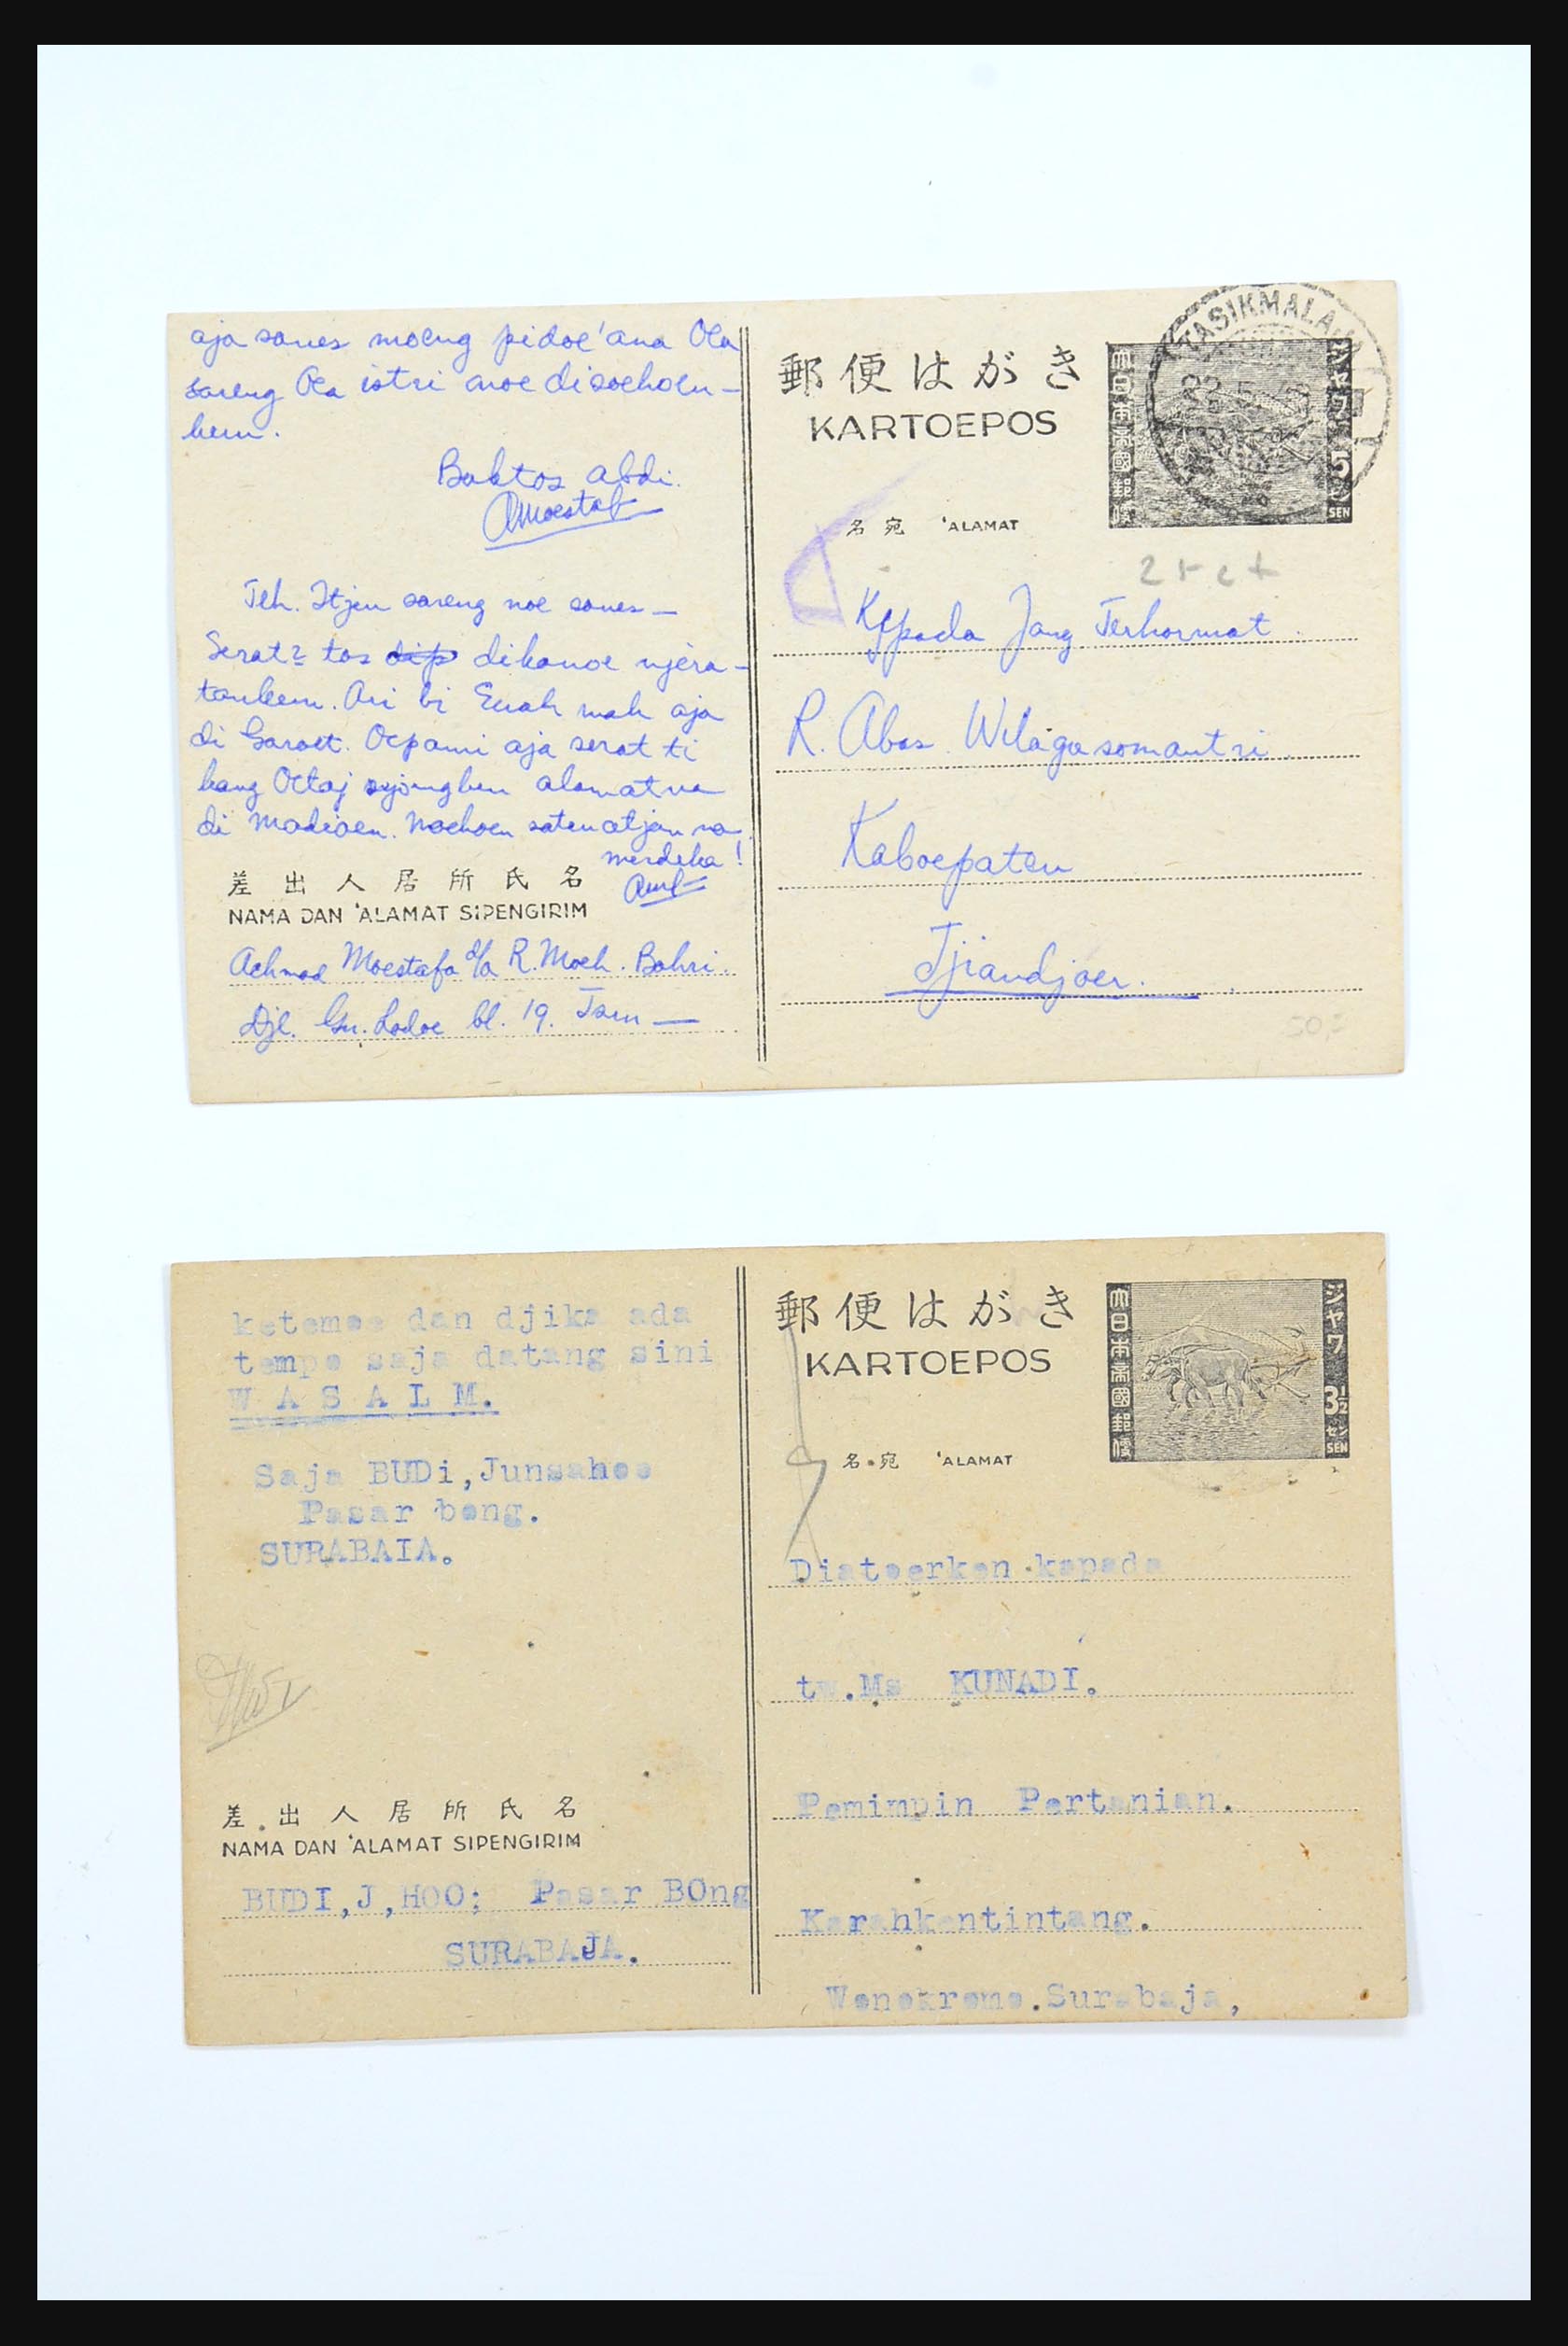 aja sanes moeng pidoe'ana Oea
sareng Oea istri anoe disoehoen-
keun.
Baktos abdi.
AMoestaf
Teh. Itjeu sareng noe sanes -
Serat2 tos dikanoe njera-
tankeun. Ari bi Enah mah aja
di Garoet. Oepami aja serat ti
kang Oetaj alamatna
di Madioen. Noehoen
merdeka!
差出人居所氏名
NAMA DAN 'ALAMAT SIPENGIRIM
Achmad Moestafa d/a R. Moeh. Bahri.
Djl. Gn. Ladoe bl. 19. Tsm —
郵便はがき
KARTOEPOS
TASIKMALAJA
大日本帝國郵便
ジャワ
5
セン
SEN
名宛 'ALAMAT
Kepada Jang Terhormat.
R. Abas Wilagasomantri.
Kaboepaten
Tjiandjoer.
50,=
ketemoe dan djika ada
tempo saja datang sini
W A S A L M.
Saja BUDi,Junsahoo
Pasar bong.
SURABAIA.
差出人居所氏名
NAMA DAN 'ALAMAT SIPENGIRIM
BUDI,J,HOO; Pasar BOng
SURABAJA.
郵便はがき
KARTOEPOS
大日本帝國郵便
ジャワ
3½
セン
SEN
名宛 'ALAMAT
Diatoerken kapada
tw.Ms KUNADI.
Pemimpin Pertanian.
Karahkentintang.
Wonokromo.Surabaja,